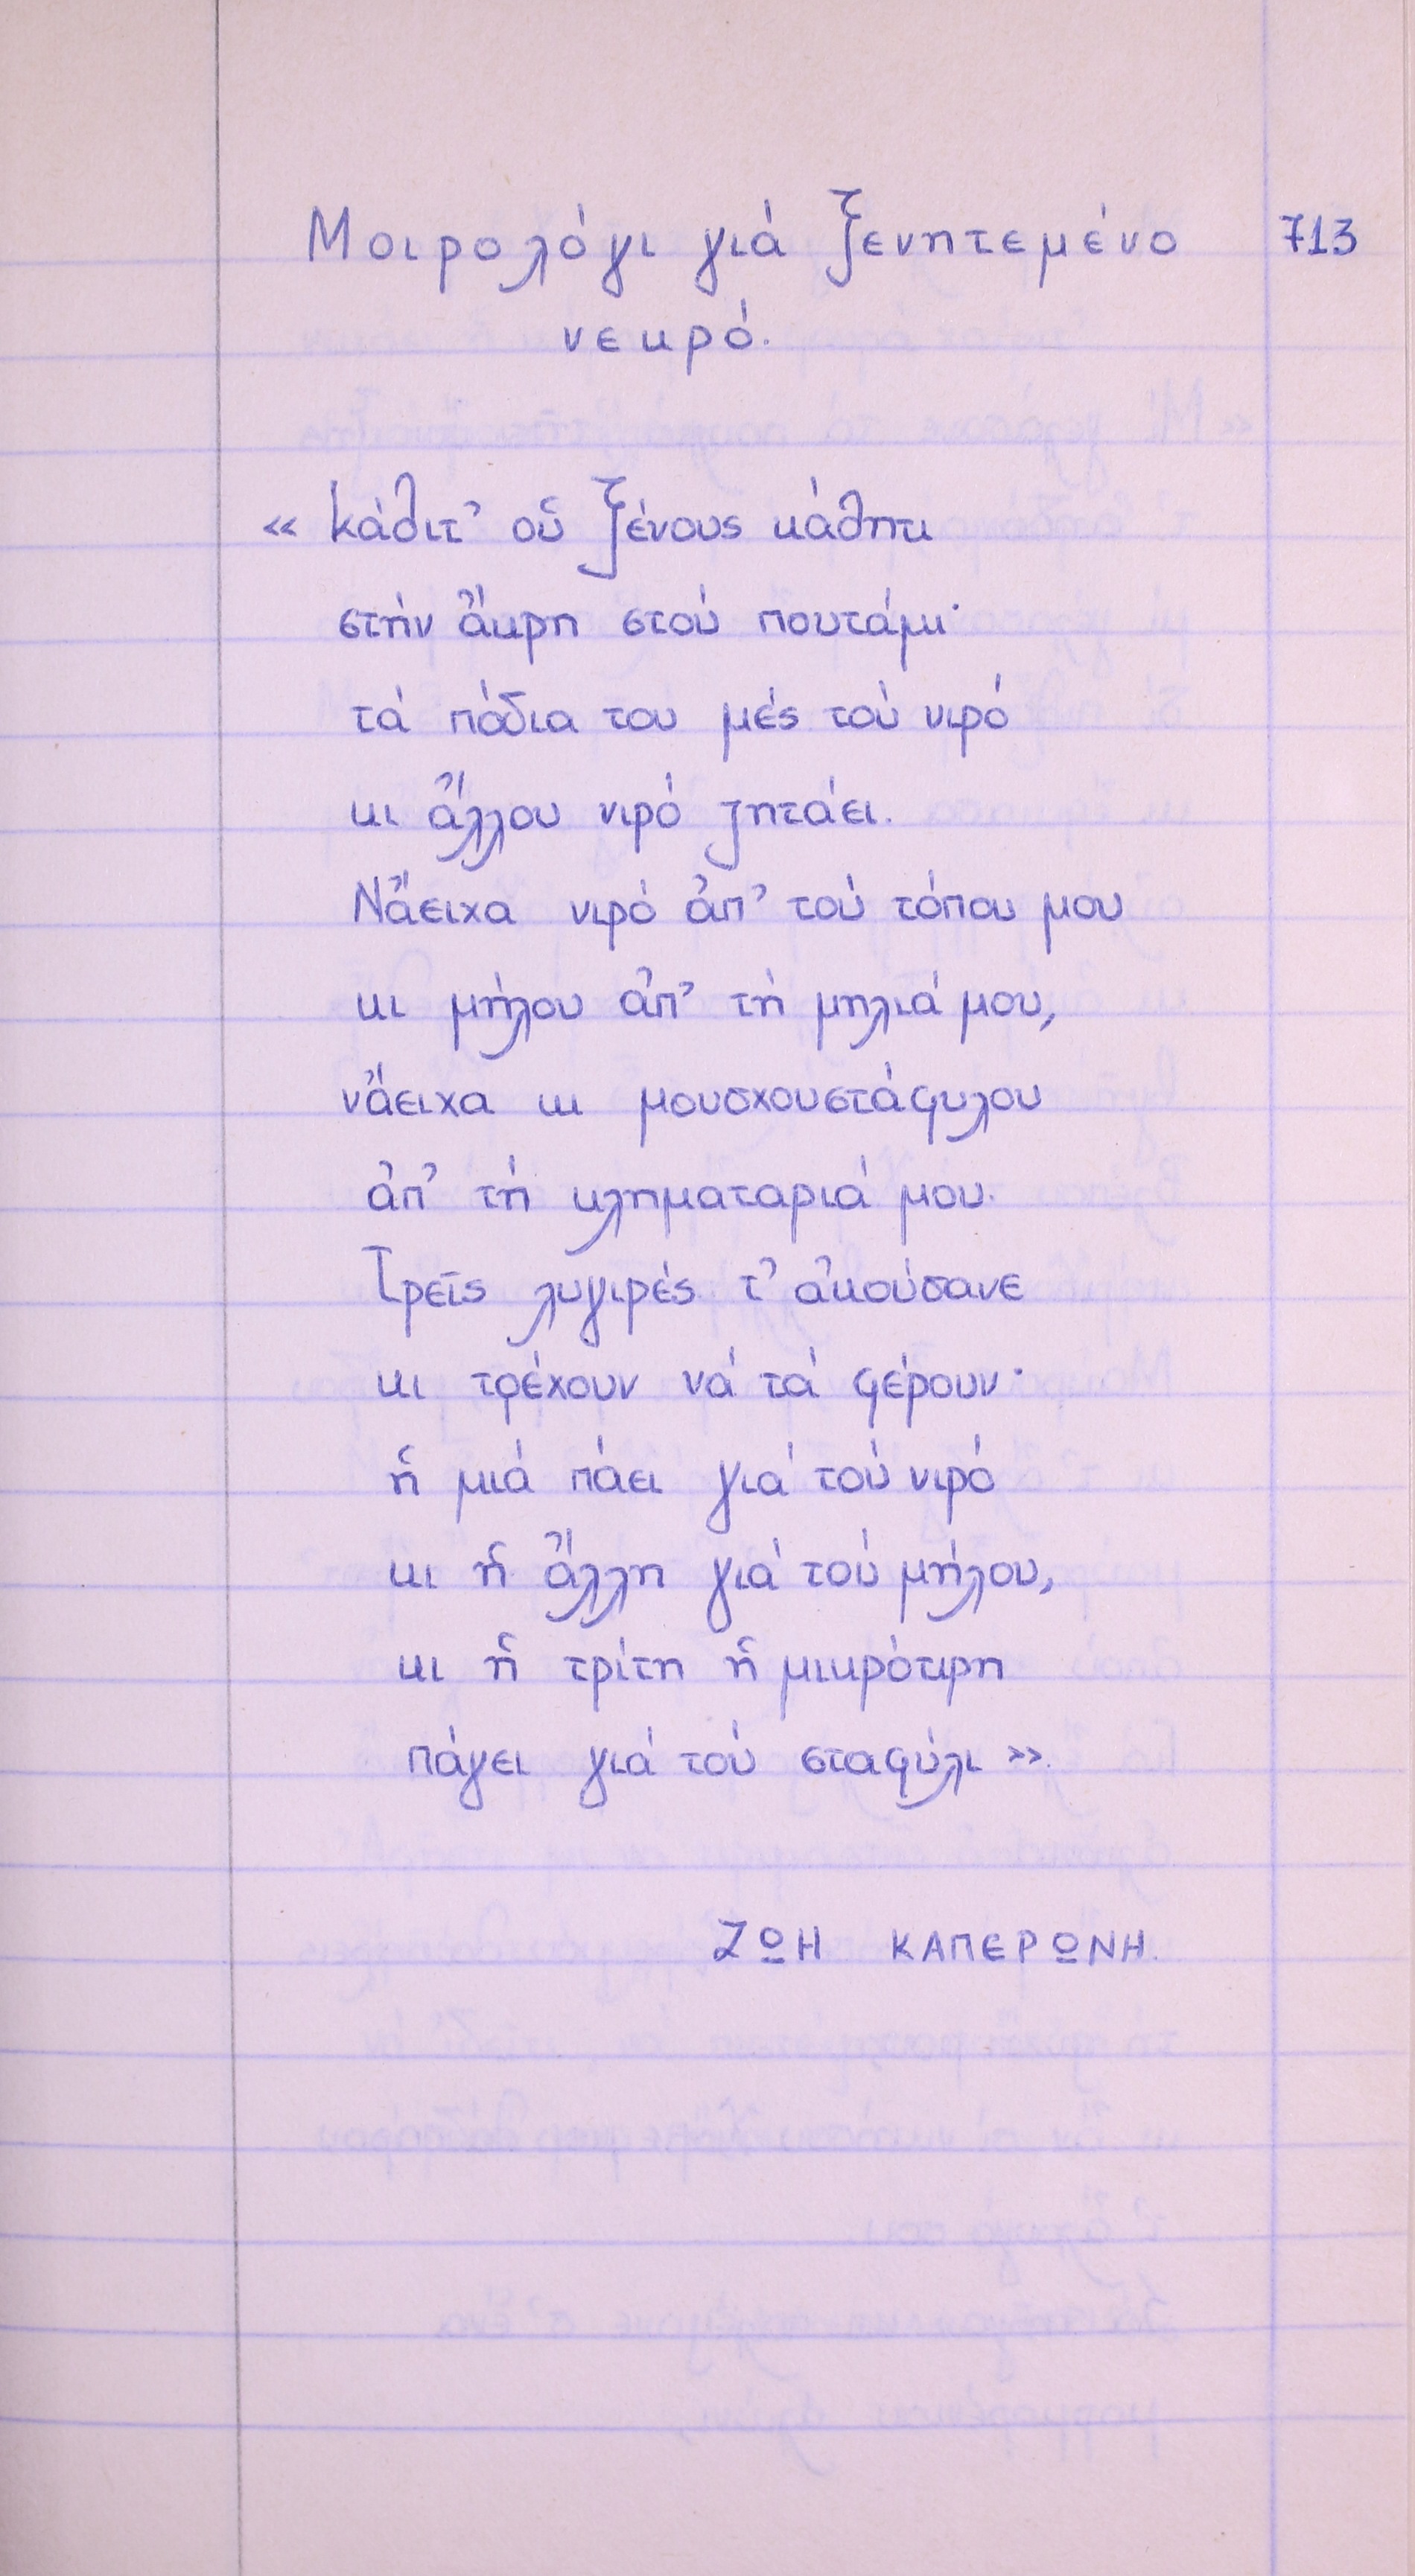 Μοιρολόγι γιά ξενητεμένο 713
νεκρό.
« Κάθιτ' οὗ ξένους κάθητι
στήν ἄκρη στού πουτάμι·
τά πόδια του μές τού νιρό
κι ἄλλου νιρό ζητάει.
Νἄειχα νιρό ἀπ' τού τόπου μου
κι μήλου ἀπ' τή μηλιά μου,
νἄειχα κι μουσχουστάφυλου
ἀπ' τή κληματαριά μου.
Τρεῖς λυγιρές τ' ἀκούσανε
κι τρέχουν νά τά φέρουν·
ἡ μιά πάει γιά τού νιρό
κι ἡ ἄλλη γιά τού μήλου,
κι ἡ τρίτη ἡ μικρότιρη
πάγει γιά τού σταφύλι ».
ΖΩΗ ΚΑΠΕΡΩΝΗ.